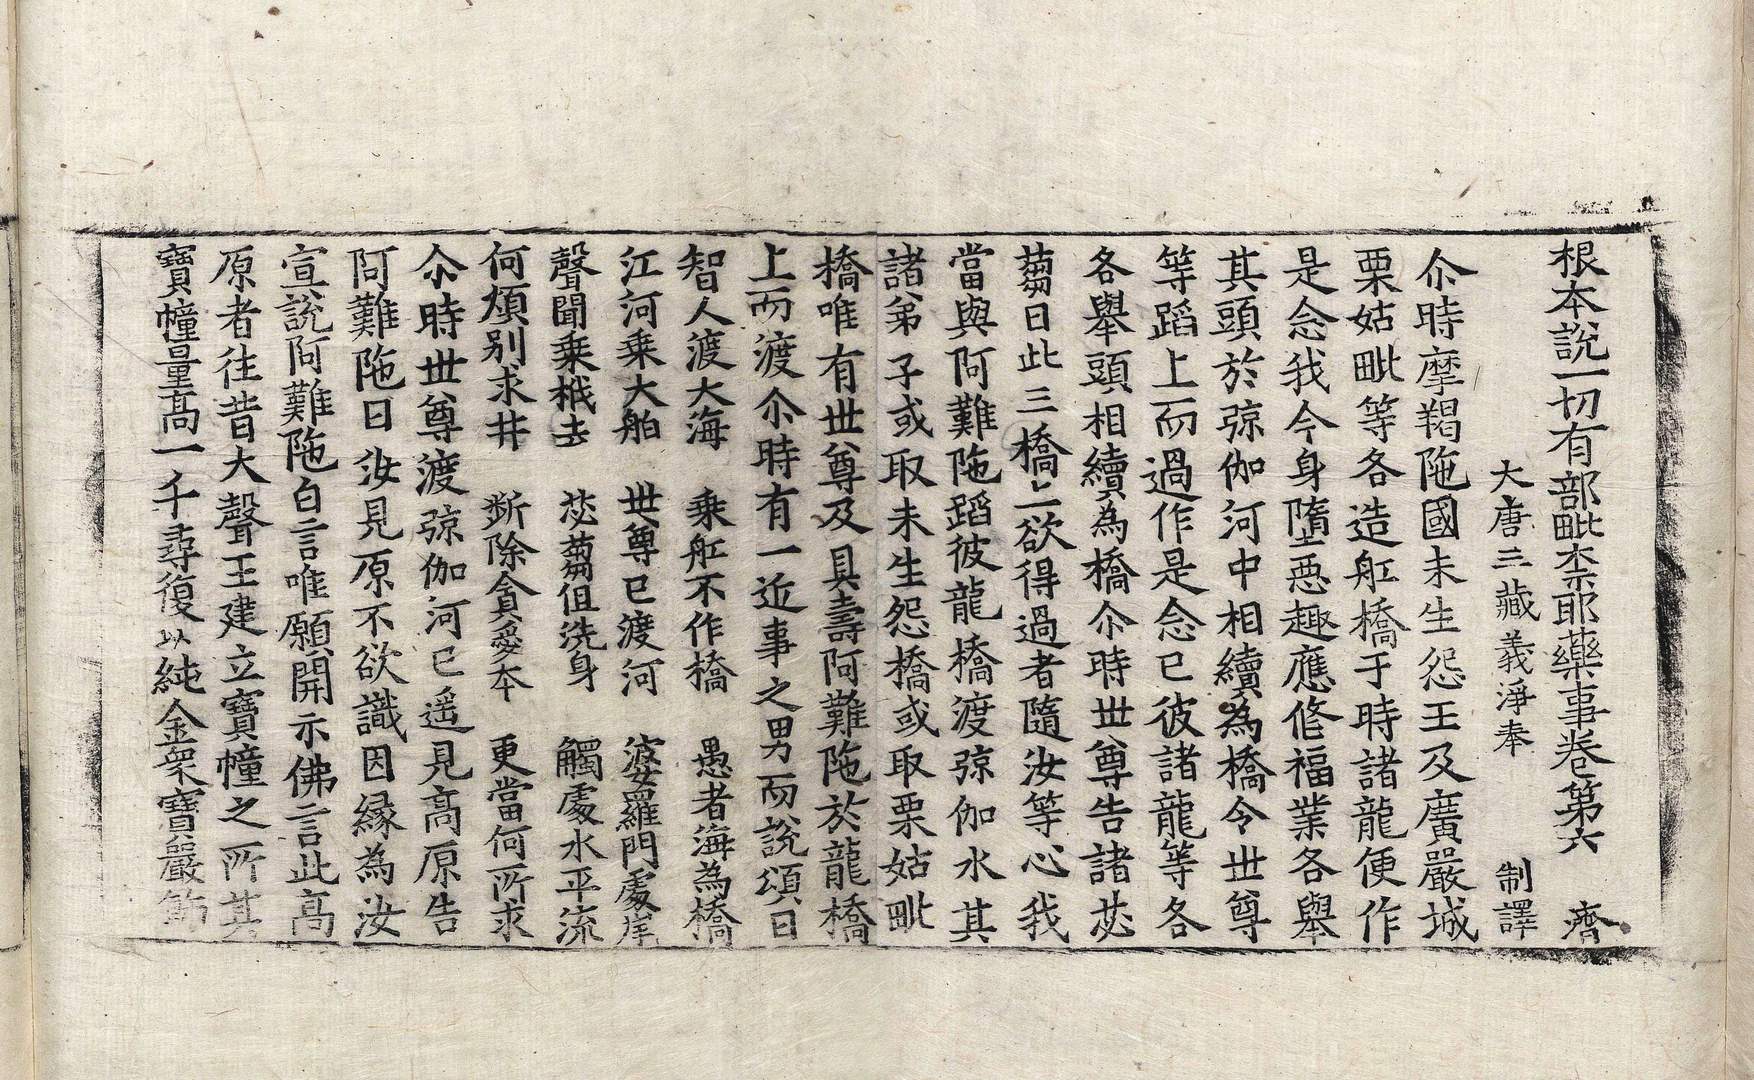 根本說一切有部毗柰耶藥事卷第六　濟
大唐三藏義淨奉　制譯
尒時摩羯陁國未生怨王及廣嚴城
栗姑毗等各造舩橋于時諸龍便作
是念我今身墮惡趣應修福業各舉
其頭於弶伽河中相續為橋令世尊
等蹈上而過作是念已彼諸龍等各
各舉頭相續為橋尒時世尊告諸苾
蒭曰此三橋上欲得過者隨汝等心我
當與阿難陁蹈彼龍橋渡弶伽水其
諸弟子或取未生怨橋或取栗姑毗
橋唯有世尊及具壽阿難陁於龍橋
上而渡尒時有一近事之男而說頌曰
智人渡大海　乘舩不作橋　愚者海為橋
江河乘大舶　世尊已渡河　婆羅門處岸
聲聞乘栰去　苾蒭但洗身　觸處水平流
何煩別求井　斷除貪愛本　更當何所求
尒時世尊渡弶伽河已遥見高原告
阿難陁曰汝見原不欲識因緣為汝
宣說阿難陁白言唯願開示佛言此高
原者往昔大聲王建立寶幢之所其
寶幢量高一千尋復以純金衆寶嚴飾